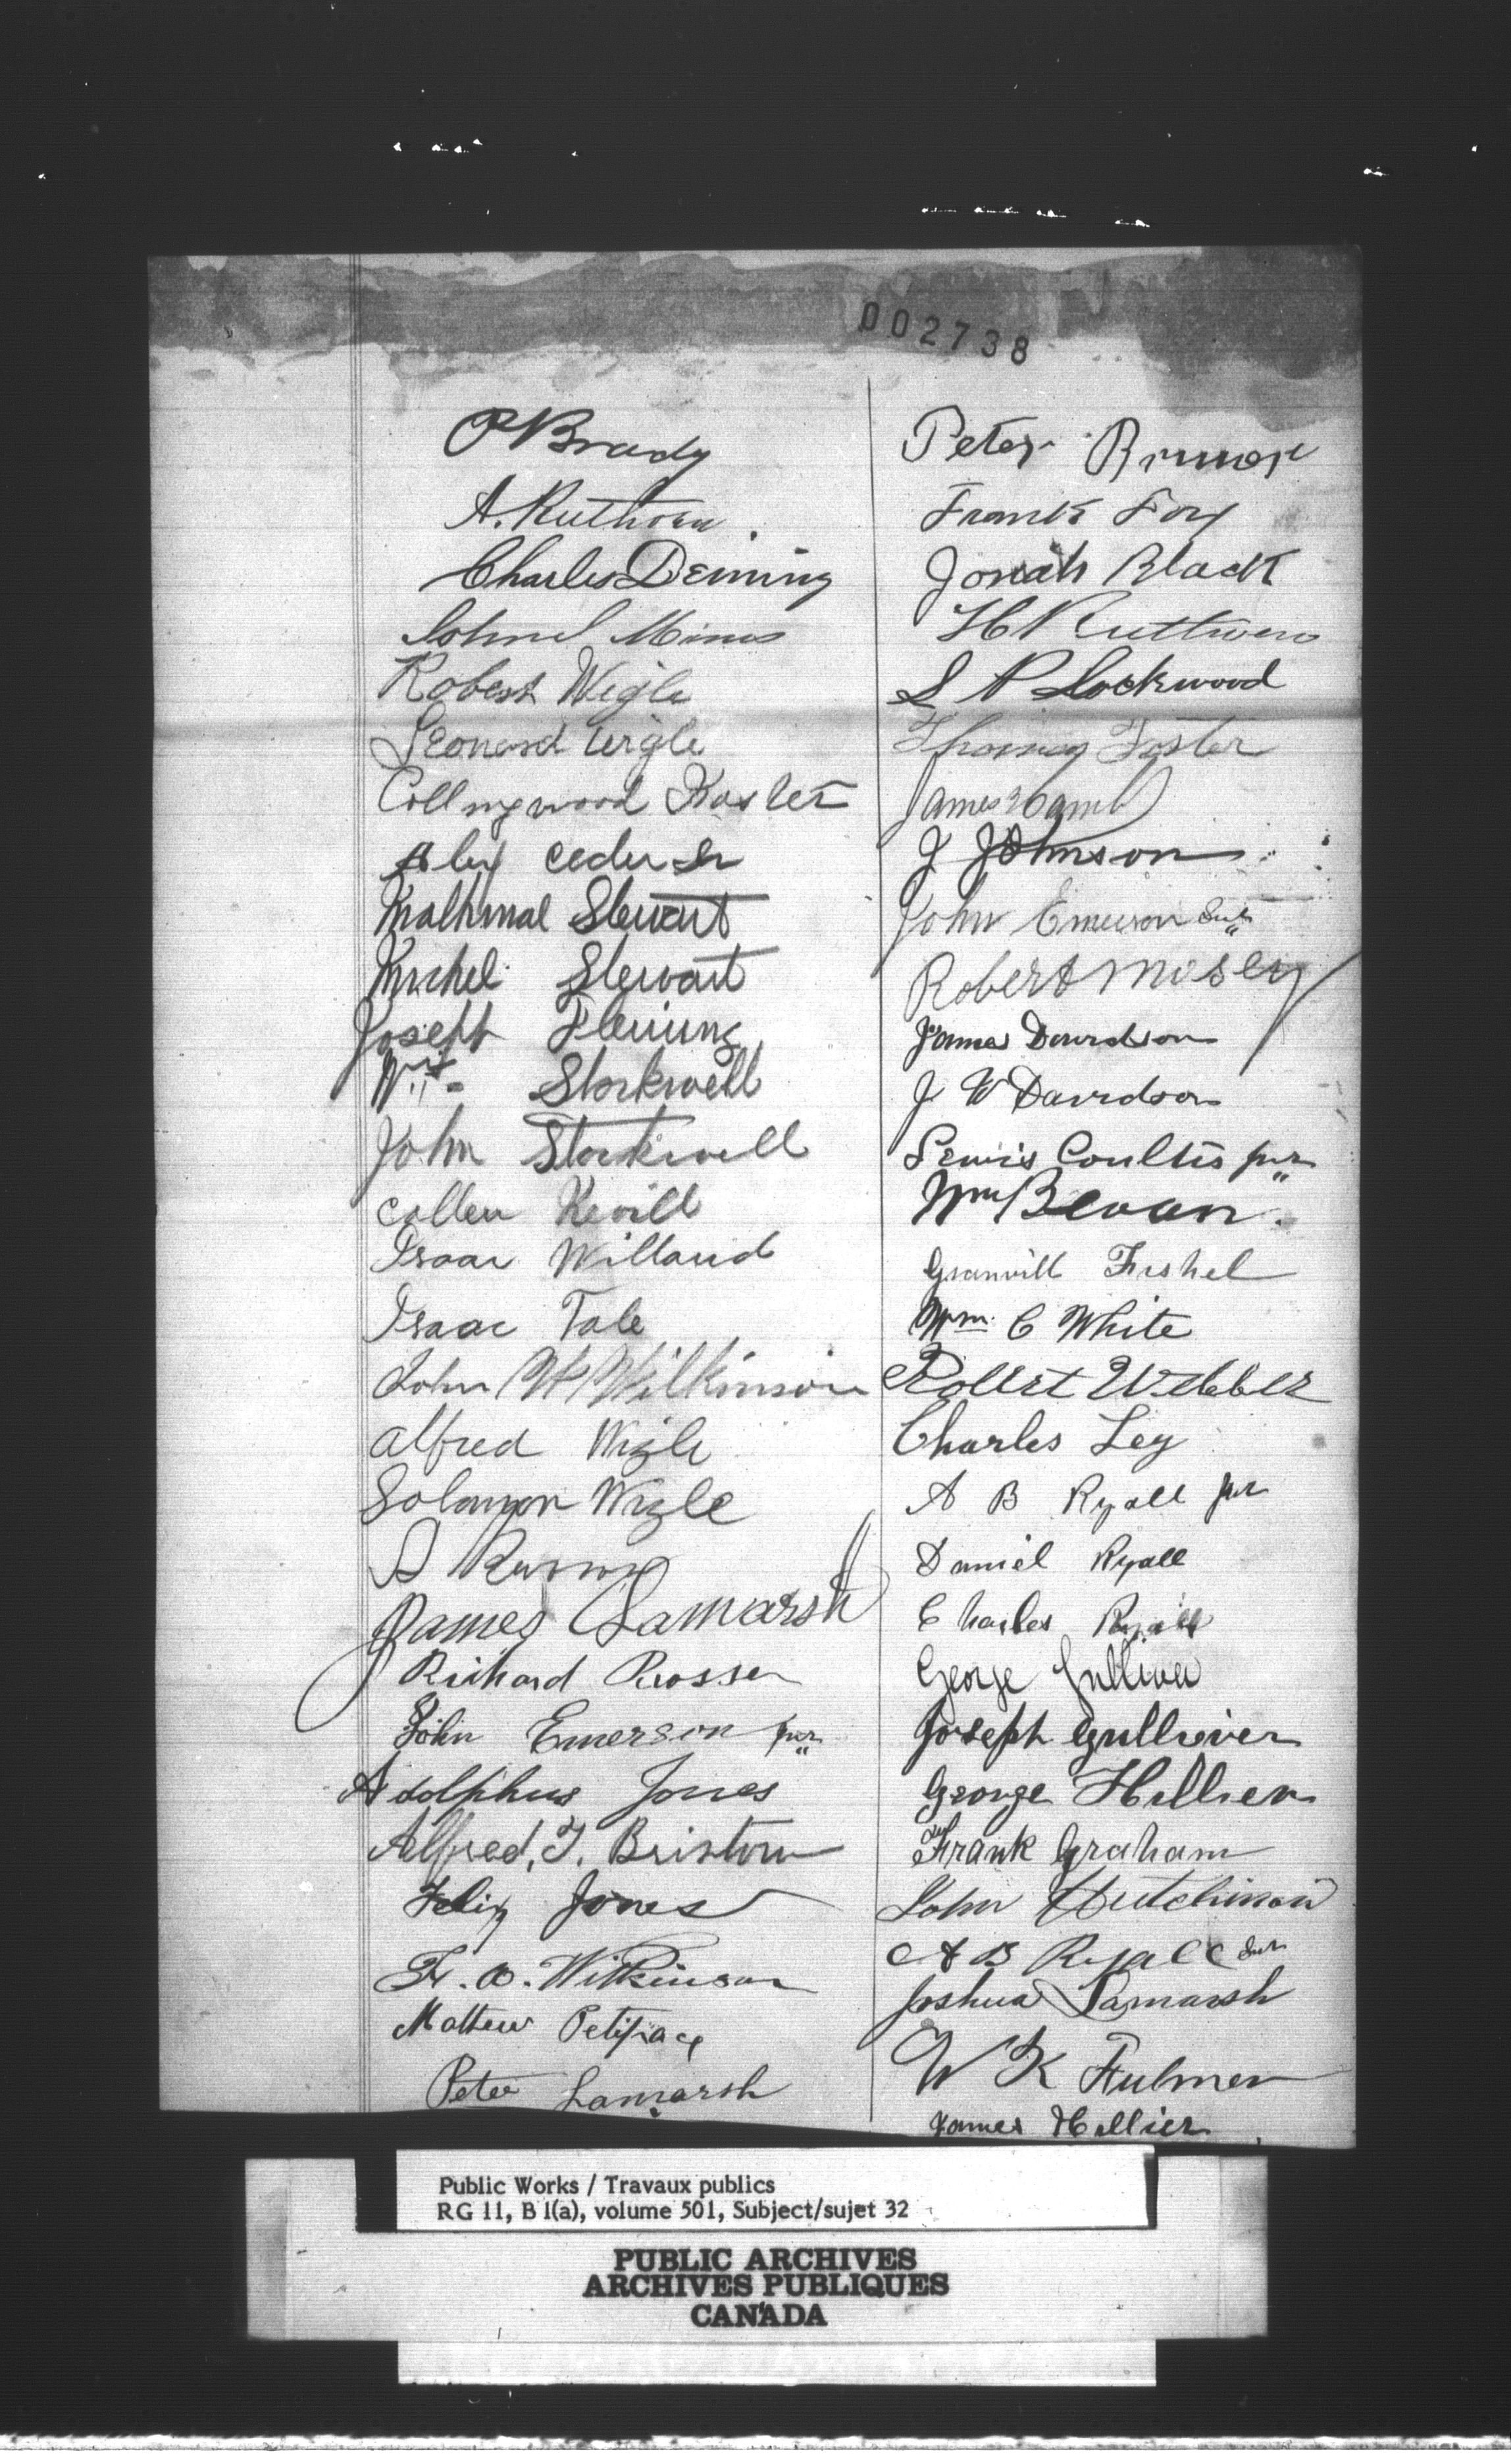 002738
P Brady
A. Ruthven
Charles Deming
John S Mines
Robert Wigle
Leonard Wigle
Collingwood Foster
Alex
Stewart
Michel Stewart
Joseph Fleming
Wm Stockwell
John Stockwell
Cullen Kevill
Isaac Willard
Isaac Tale
John W Wilkinson
Alfred Wigle
Solomon Wigle
James Lamarsh
Richard Rosser
John Emerson jnr
Adolphus Jones
Alfred. T. Bristow
Felix Jones
Wilkinson
Mattew
Peter Lamarsh
Peter Bruner
Frank Fox
Jonah Black
H Ruthven
S P Lockwood
Thomas Foster
James
J Johnson
John Emerson Snr
Robert Mosey
James Davidson
J W Davidson
Lewis Coultis jnr
Wm Bevan
Granvill Fushel
Wm. C White
Robert Webber
Charles Ley
A B Ryall jnr
Daniel Ryall
Charles Ryall
George Gulliver
Joseph Gulliver
George Hillier
Frank Graham
John Hutchinson
A B Ryall Snr
Joshua Lamarsh
W K Fulmer
James Hillier
Public Works / Travaux publics
RG 11, B 1(a), volume 501, Subject/sujet 32
PUBLIC ARCHIVES
ARCHIVES PUBLIQUES
CANADA